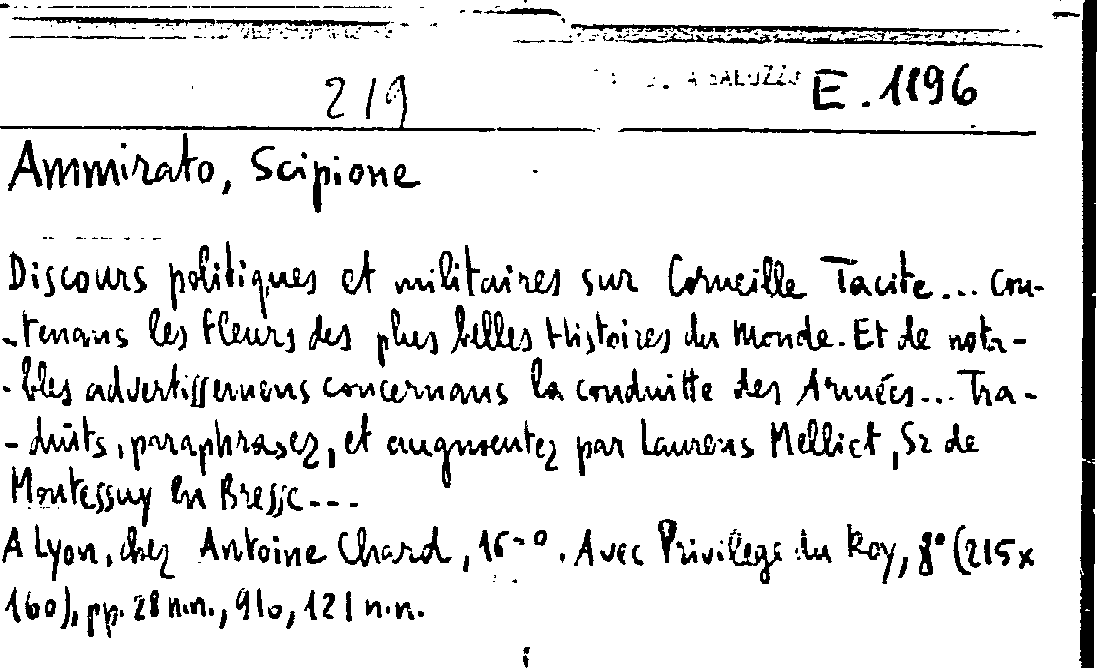 219 A SALUZZO E. 1196
Ammirato, Scipione
Discours politiques et militaires sur Corneille Tacite... con-
-tenans les fleurs des plus belles Histoires du Monde. Et de nota-
-bles advertissemens concernans la conduitte des Armées... Tra-
-duits, paraphrasez, et augmentez par Laurens Melliet, Sr de
Montessuy en Bresse...
A Lyon, chez Antoine Chard, Avec Privilege du Roy, 8° (215x
160), pp. 28 n.n., 910, 121 n.n.